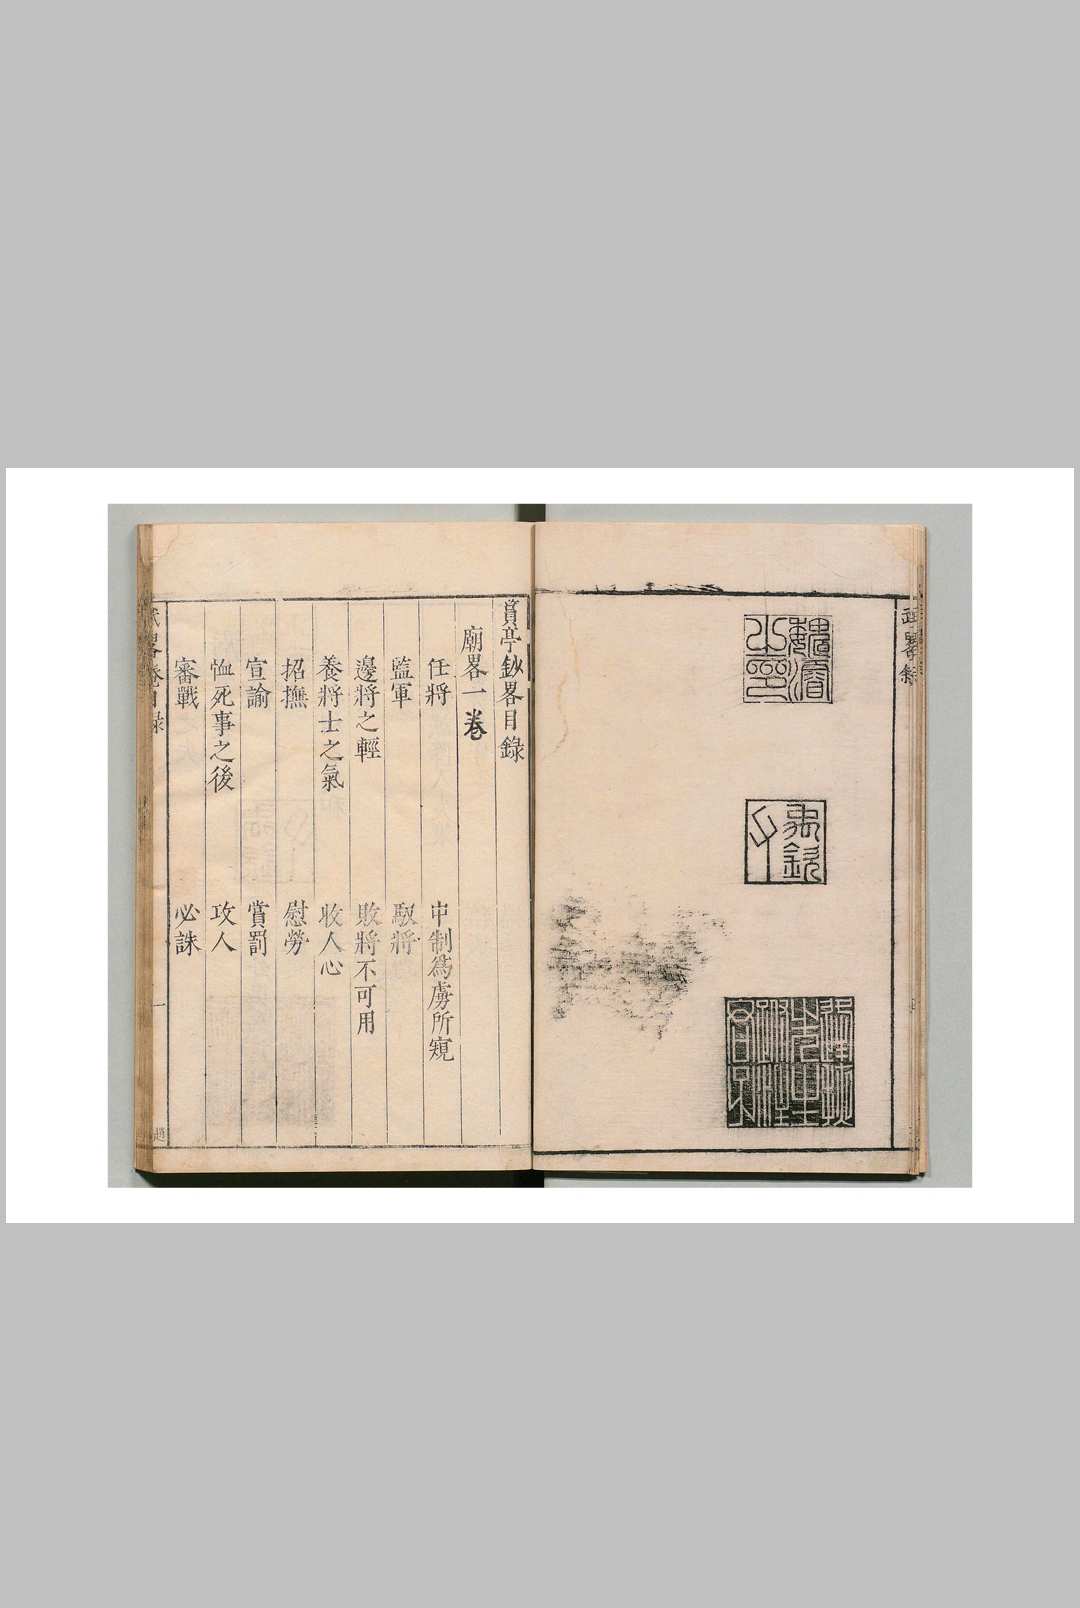 魏濬
之印
禹欽
氏
員亭鈔畧目錄
廟畧一卷
任將　中制為虜所窺
監軍　馭將
邊將之輕　敗將不可用
養將士之氣　收人心
招撫　慰勞
宣諭　賞罰
恤死事之後　攻人
審戰　必誅
武畧卷目録　一